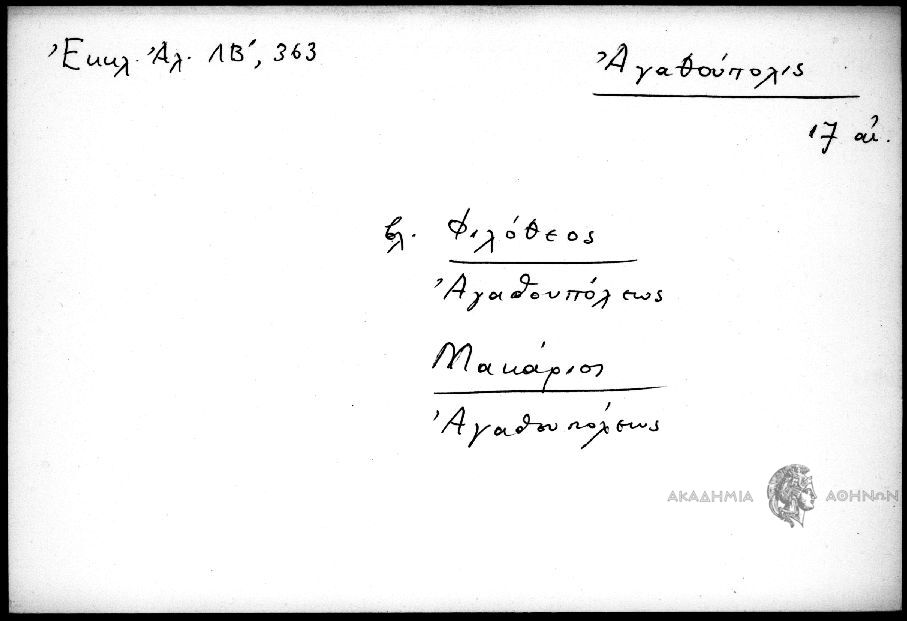 Ἐκκλ. Ἀλ. ΛΒ', 363
Ἀγαθούπολις
17 αἰ.
βλ. Φιλόθεος
Ἀγαθουπόλεως
Μακάριος
Ἀγαθουπόλεως
ΑΚΑΔΗΜΙΑ ΑΘΗΝΩΝ